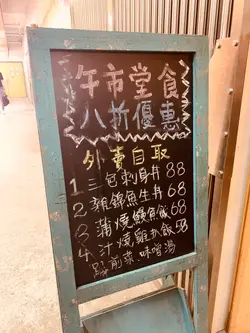 午市堂食
八折優惠
外賣自取
1 三色刺身丼 88
2 雜錦魚生丼 68
3 蒲燒鰻魚飯 68
4 汁燒雞扒飯 58
跟前菜 味噌湯